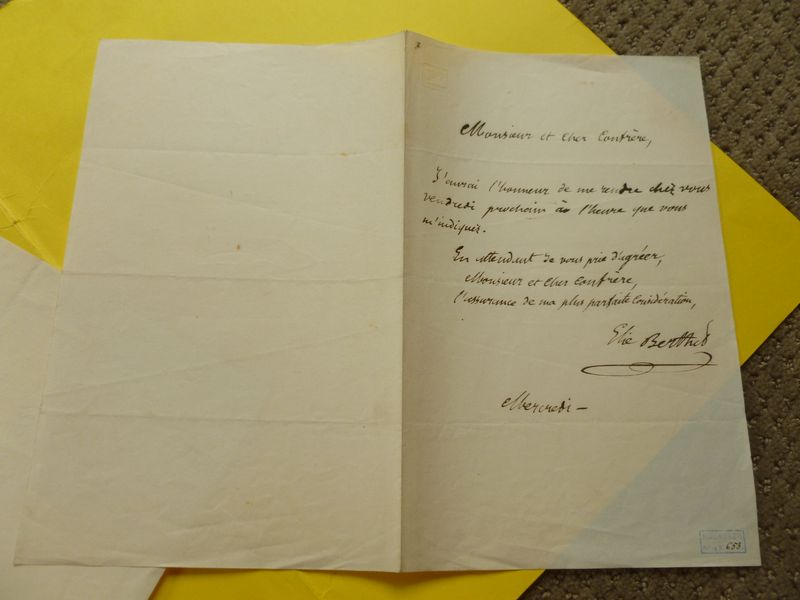 Monsieur et Cher Confrère,
J'aurai l'honneur de me rendre chez vous
vendredi prochain à l'heure que vous
m'indiquez.
En attendant je vous prie d'agréer,
Monsieur et Cher Confrère,
l'assurance de ma plus parfaite Considération,
Elie Berthet
Mercredi —
653